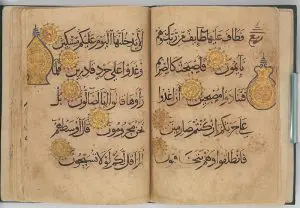 فطاف عليها طايف من ربك وهم
نايمون فاصبحت كالصريم
فتنادوا مصبحين ان اغدوا
على حرثكم ان كنتم صارمين
فانطلقوا وهم يتخافتون
ان لا يدخلنها اليوم عليكم مسكين
وغدوا على حرد قادرين فلما
راوها قالوا انا لضالون بل
نحن محرومون قال اوسطهم
الم اقل لكم لولا تسبحون